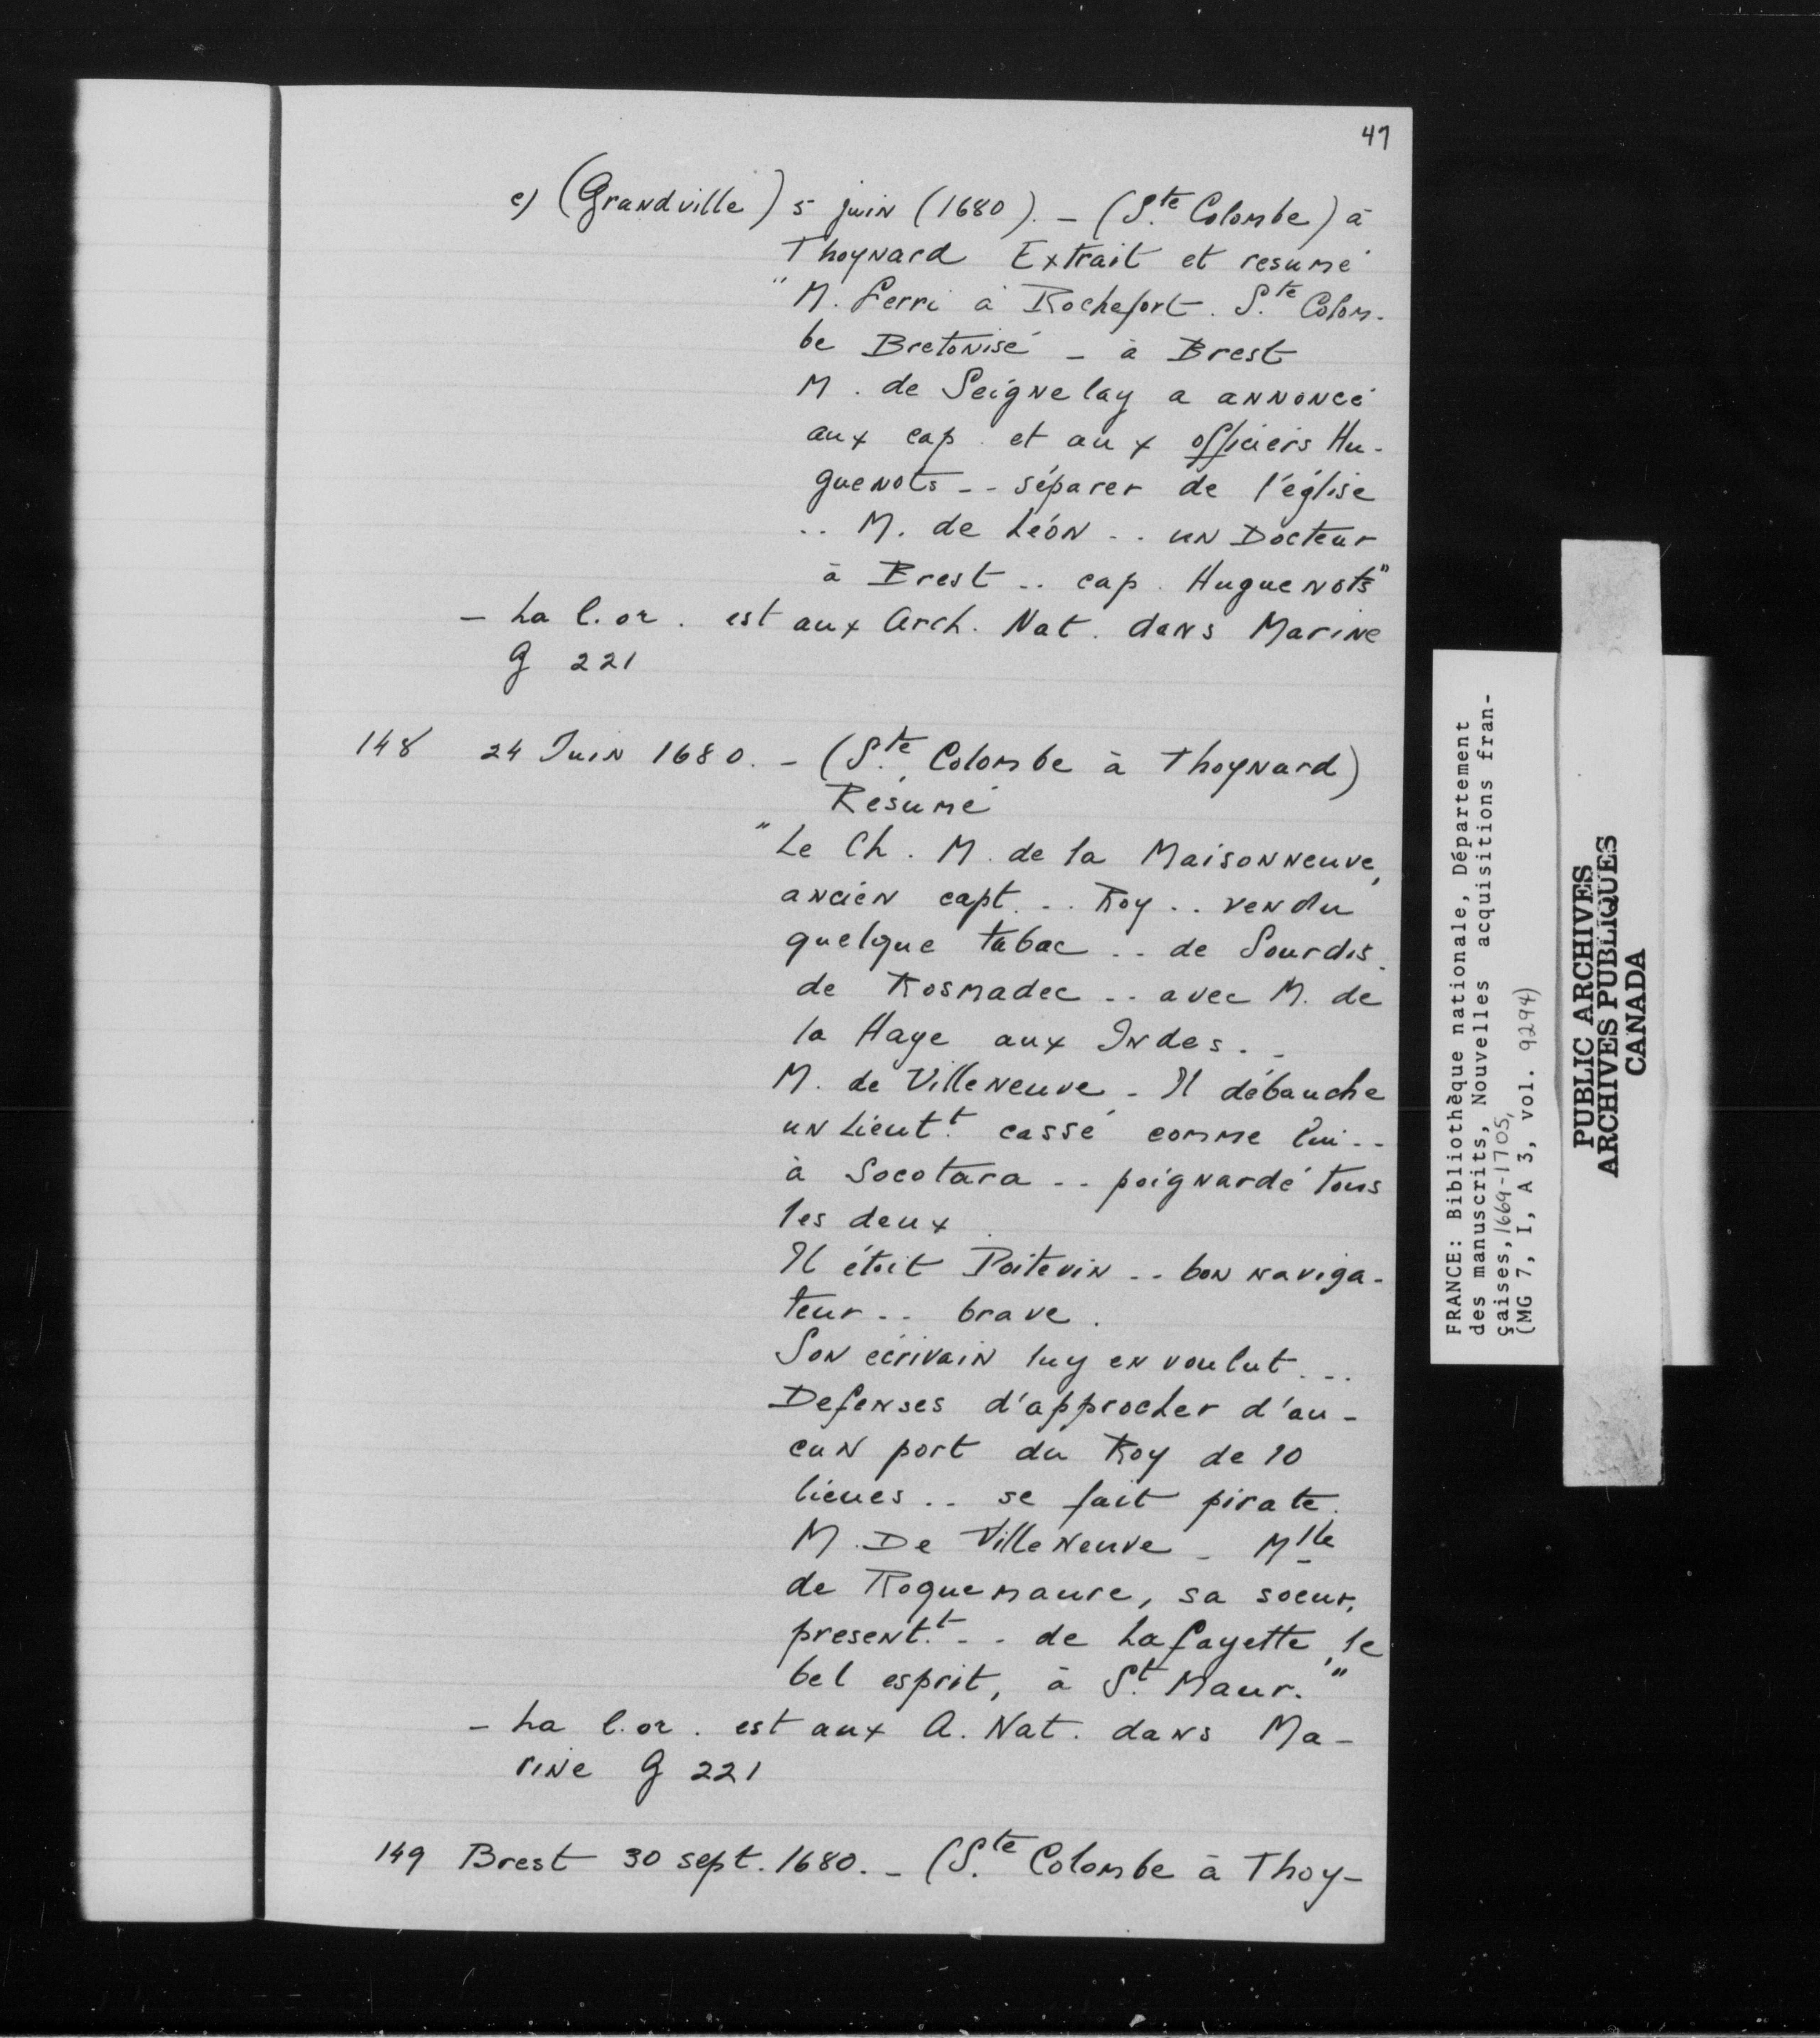 47
e) (Grandville) 5 juin (1680). - (S.te Colombe) à
Thoynard Extrait et resumé
"M. Ferri à Rochefort. S.te Colom-
be Bretonisé - à Brest
M. de Seignelay a annoncé
aux cap. et aux officiers Hu-
guenots -- séparer de l'église
.. M. de Léon .. un Docteur
à Brest .. cap. Huguenots"
- La l. or. est aux Arch. Nat. dans Marine
G 221
148 24 Juin 1680. - (S.te Colombe à Thoynard)
Résumé
"Le Ch. M. de la Maisonneuve,
ancien capt. .. Roy .. vendu
quelque tabac .. de Sourdis.
de Rosmadec .. avec M. de
la Haye aux Indes. .
M. de Villeneuve - Il débauche
un Lieut.t cassé comme lui ..
à Socotara .. poignardé tous
les deux
Il étoit Poitevin .. bon naviga-
teur .. brave.
Son écrivain luy en voulut ...
Defenses d'approcher d'au-
cun port du Roy de 10
lieues .. se fait pirate.
M. De Villeneuve - Mlle
de Roquemaure, sa soeur,
present.t .. de Lafayette, le
bel esprit, à St. Maur."
- La l. or. est aux A. Nat. dans Ma-
rine G 221
149 Brest 30 sept. 1680. - (S.te Colombe à Thoy-
FRANCE: Bibliothèque nationale, Département
des manuscrits, Nouvelles acquisitions fran-
çaises, 1669-1705,
(MG 7, I, A 3, vol. 9294)
PUBLIC ARCHIVES
ARCHIVES PUBLIQUES
CANADA